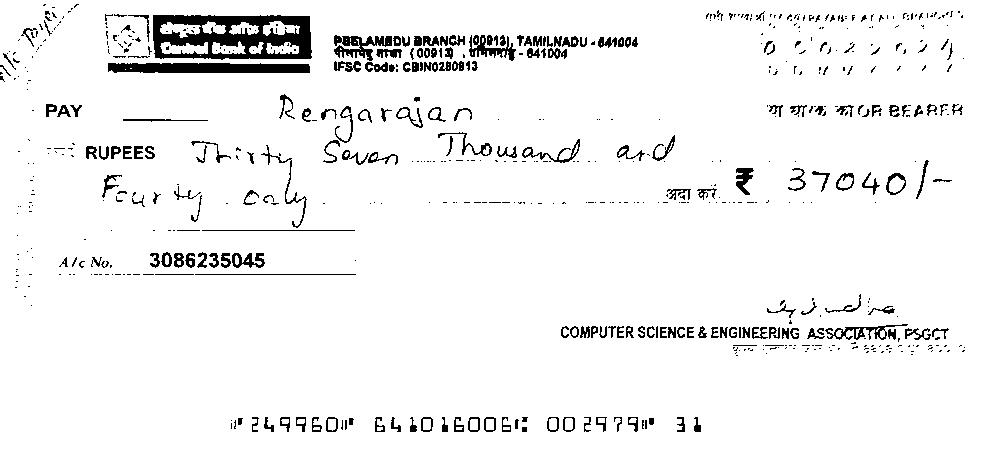 A/c Payee
सेन्ट्रल बैंक ऑफ इंडिया
Central Bank of India
PEELAMEDU BRANCH (00913), TAMILNADU - 641004
(00913) , - 641004
IFSC Code: CBIN0280913
PAYABLE AT ALL BRANCHES
PAY Rengarajan या धारक को OR BEARER
RUPEES Thirty Seven Thousand and
Fourty only अदा करें ₹ 37040/-
A/c No. 3086235045
COMPUTER SCIENCE & ENGINEERING ASSOCIATION, PSGCT
Please sign above
⑈249960⑈ 641016006⑆ 002979⑈ 31